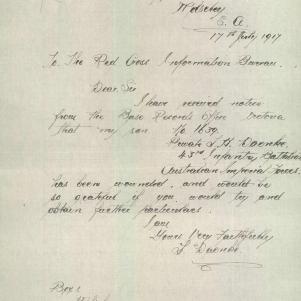 Wolseley
S. A.
17th July 1917
To The Red Cross Information Bureau.
Dear Sir
I have received notice
from the Base Records Office Victoria
that my son No 1639.
Private S. H. Daenke
43rd Infantry Battalion
Australian Imperial Forces.
has been wounded, and would be
so grateful if you would try and
obtain further particulars.
I am
Yours Very Faithfully
Daenke
Box 1